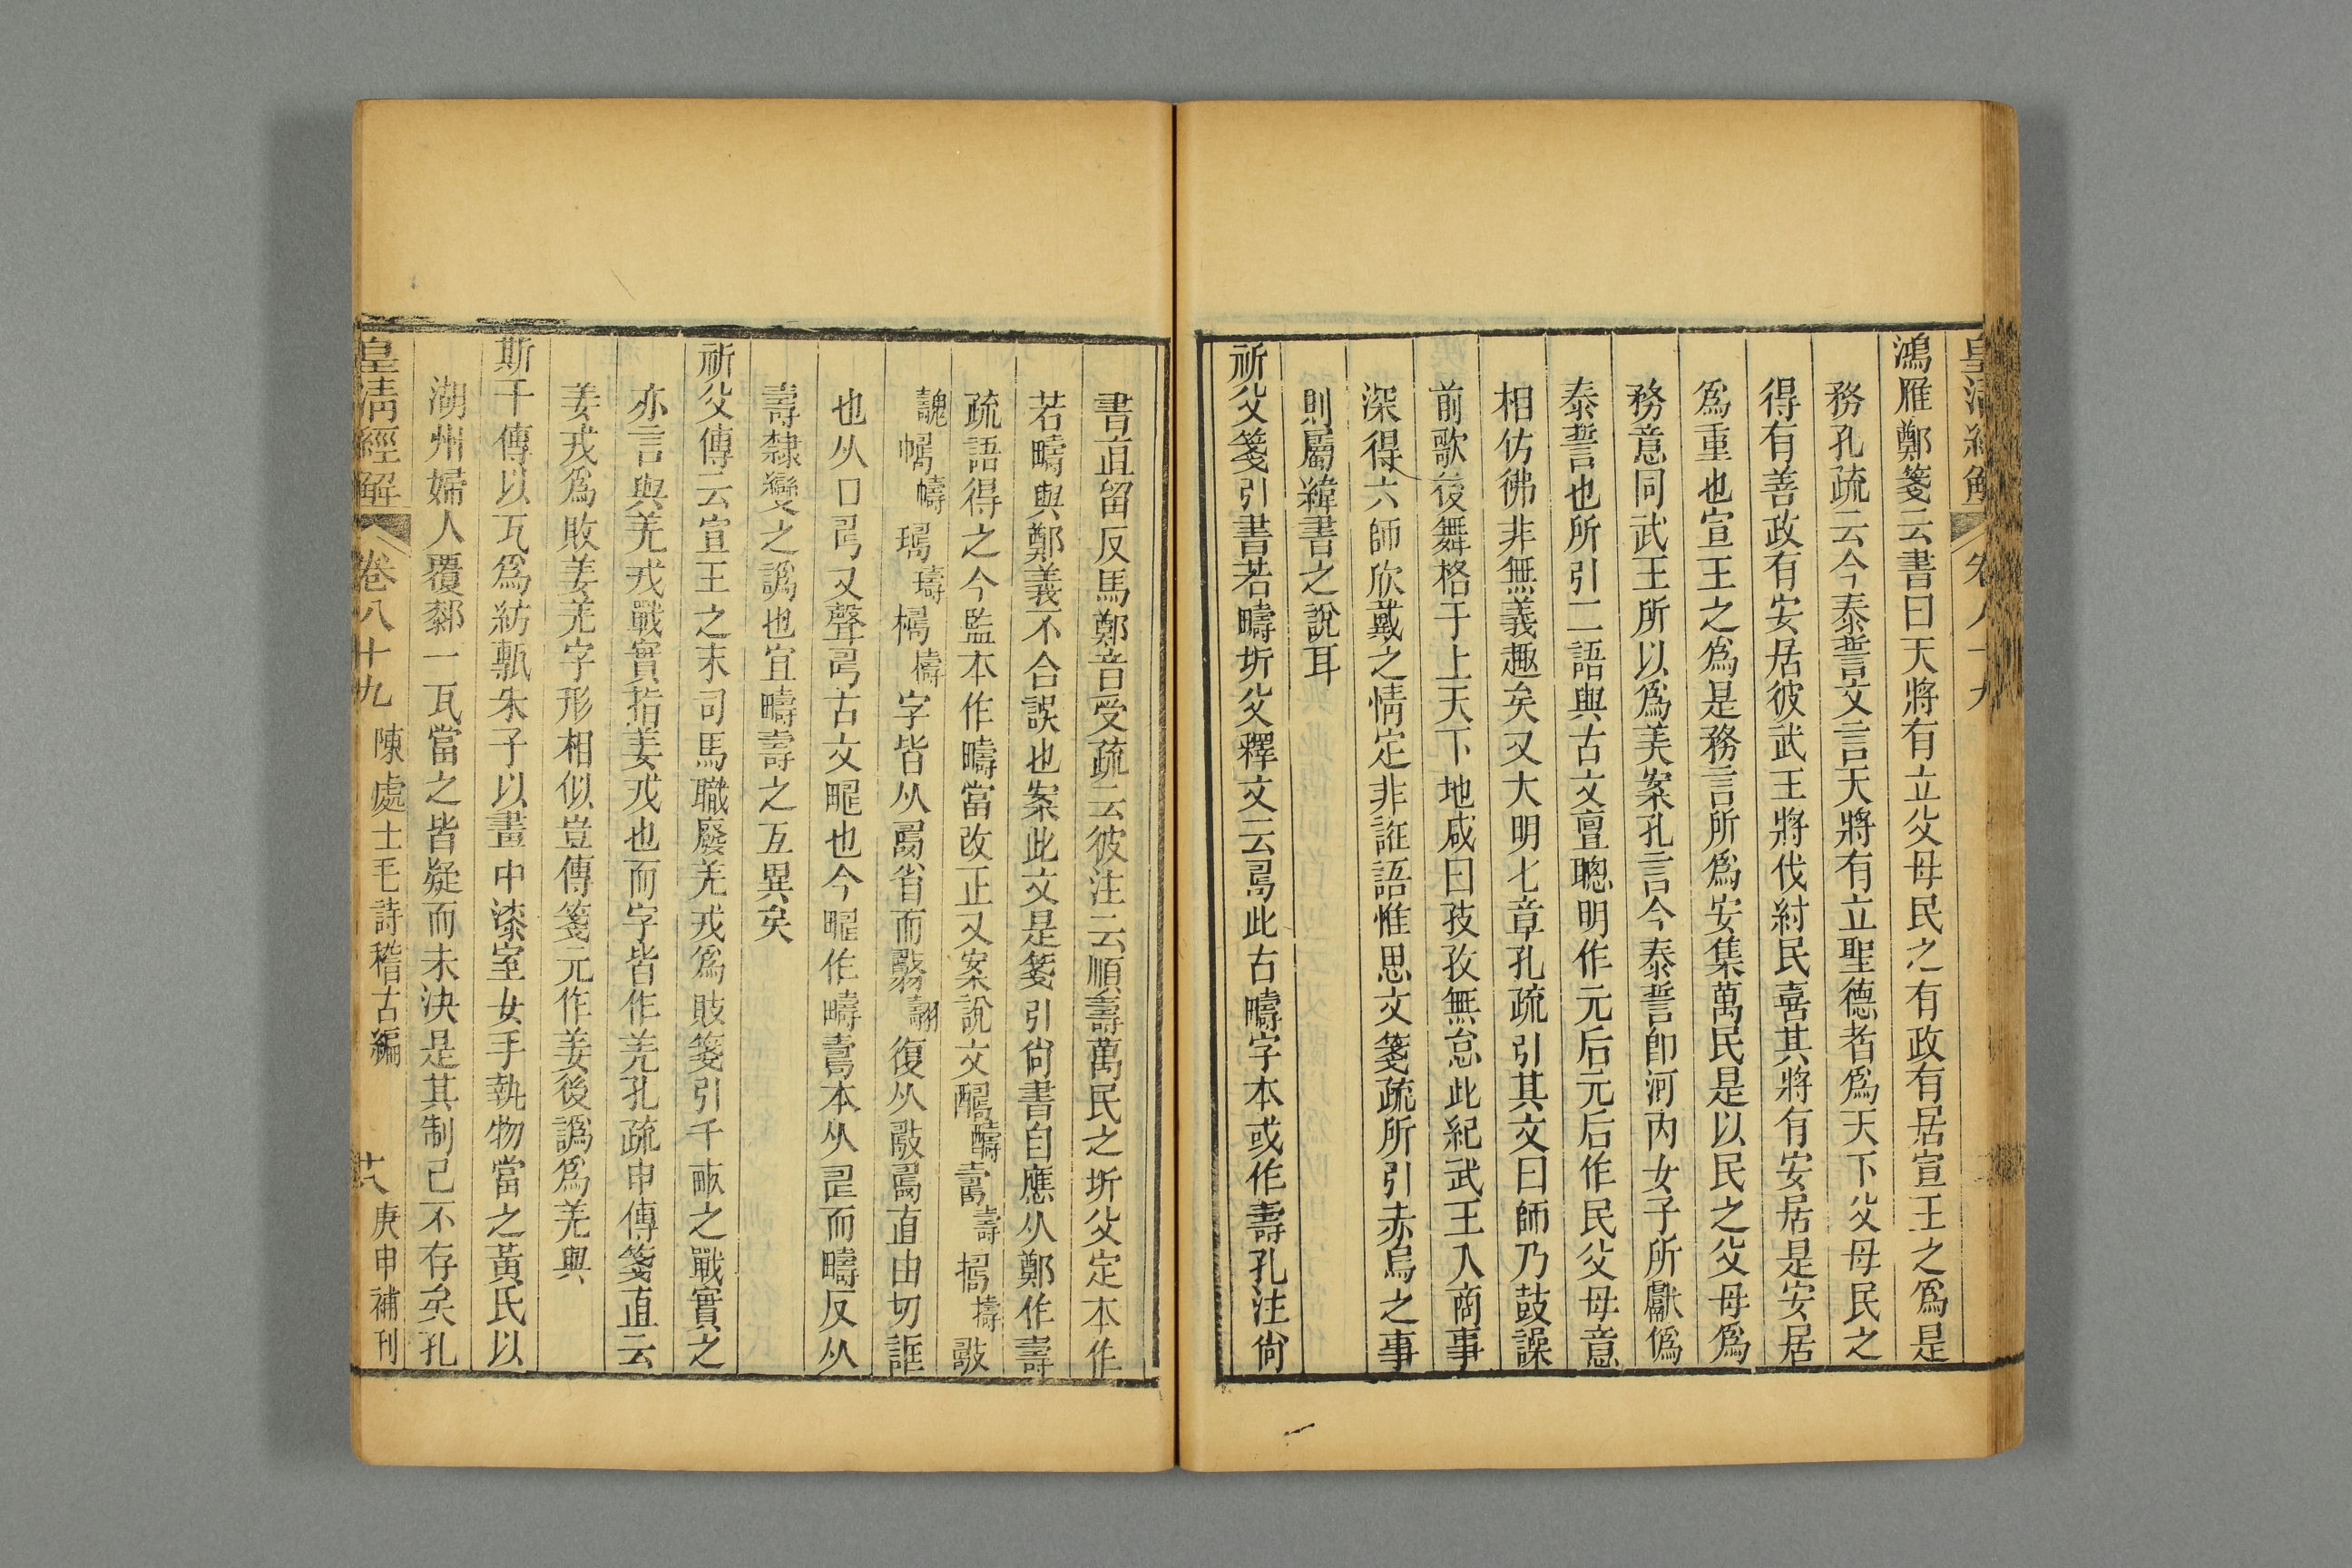 皇清經解 卷八十九
鴻雁鄭箋云書曰天將有立父母民之有政有居宣王之為是
務孔疏云今泰誓文言天將有立聖德者為天下父母民之
得有善政有安居彼武王將伐紂民喜其將有安居是安居
為重也宣王之為是務言所為安集萬民是以民之父母為
務意同武王所以為美案孔言今泰誓卽河內女子所獻僞
泰誓也所引二語與古文亶聰明作元后元后作民父母意
相仿彿非無義趣矣又大明七章孔疏引其文曰師乃鼓譟
前歌後舞格于上天下地咸曰孜孜無怠此紀武王入商事
深得六師欣戴之情定非誑語惟思文箋疏所引赤烏之事
則屬緯書之說耳
祈父箋引書若疇圻父釋文云𠷎此古疇字本或作壽孔注尙
書直留反馬鄭音受疏云彼注云順壽萬民之圻父定本作
若疇與鄭義不合誤也案此文是箋引尙書自應从鄭作壽
疏語得之今監本作疇當改正又案說文
字皆从𠷎省而
復从
直由切誰
也从口𠃬又聲𠃬古文疇也今作疇本从而疇反从
壽隸變之譌也宜疇壽之互異矣
祈父傳云宣王之末司馬職廢羌戎為敗箋引千畝之戰實之
亦言與羌戎戰實指姜戎也而字皆作羌孔疏申傳箋直云
姜戎為敗姜羌字形相似豈傳箋元作姜後譌為羌與
斯干傳以瓦為紡甎朱子以畫中漆室女手執物當之黃氏以
湖州婦人覆䣛一瓦當之皆疑而未決是其制已不存矣孔
皇清經解 卷八十九 陳處士毛詩稽古編 庚申補刊